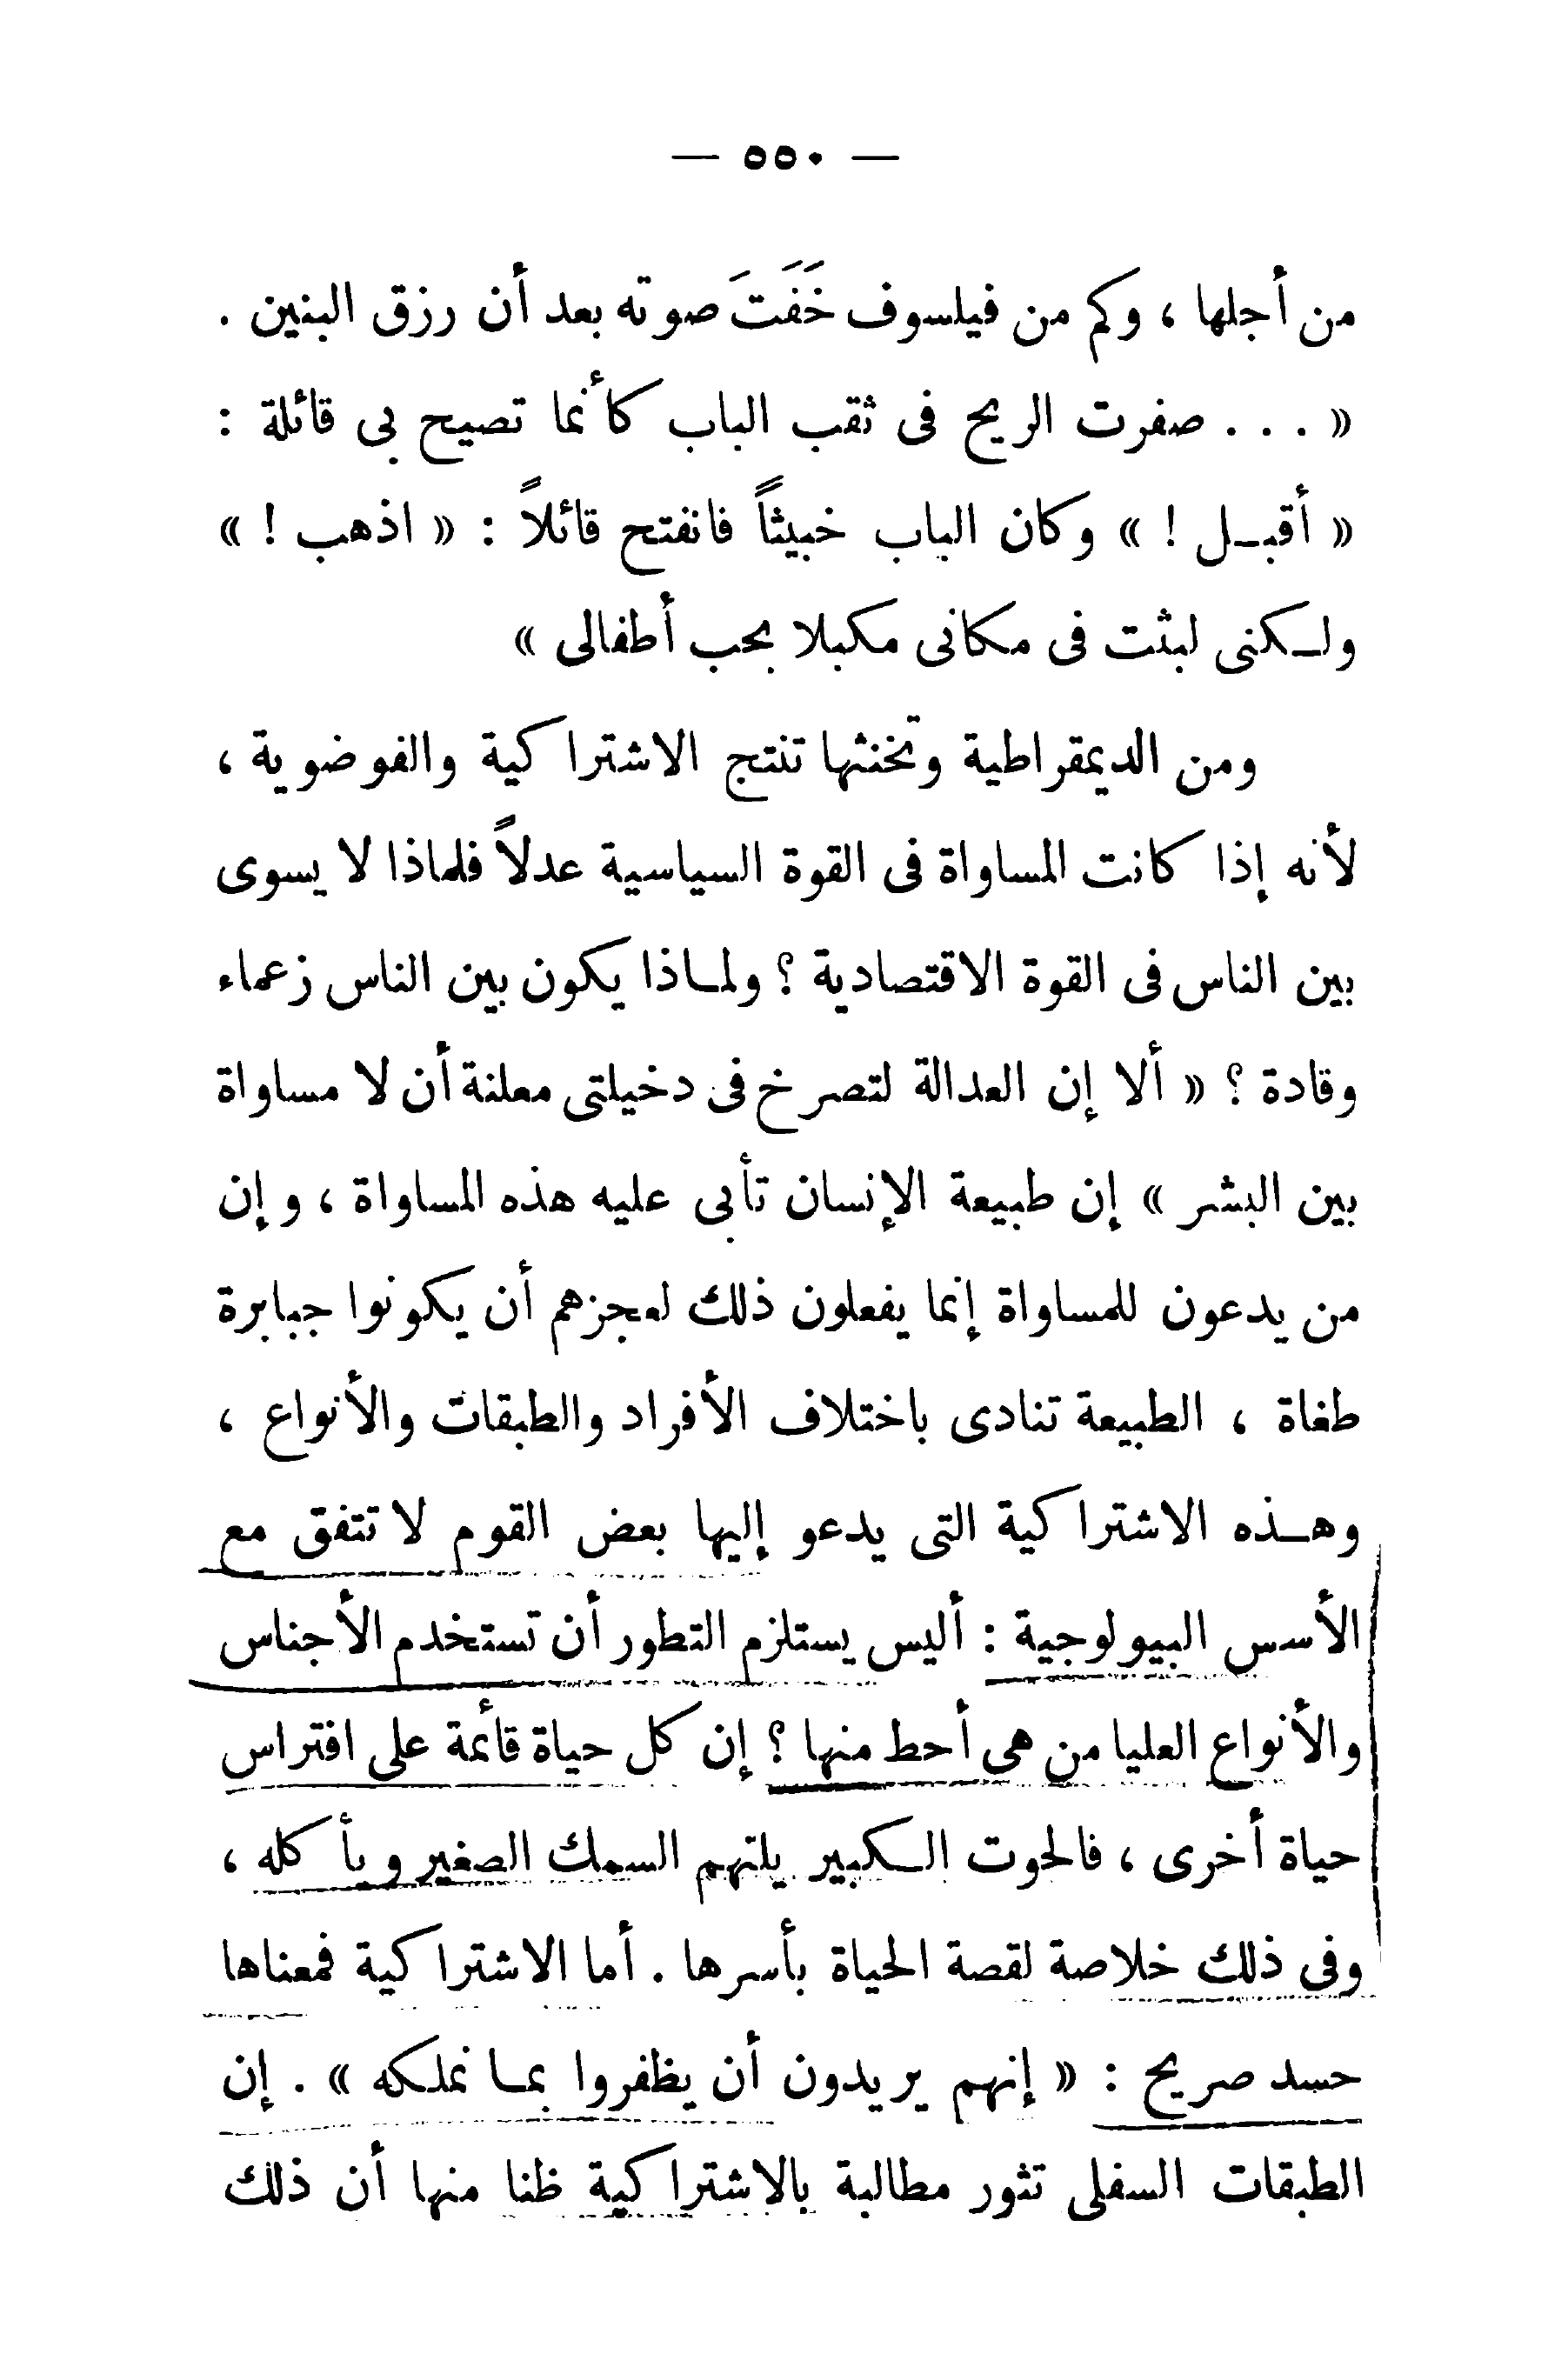 — ٥٥٠ —
من أجلها ، وكم من فيلسوف خَفَتَ صوته بعد أن رزق البنين .
« . . . صفرت الريح فى ثقب الباب كأنما تصيح بى قائلة :
« أقبـل ! » وكان الباب خبيثاً فانفتح قائلاً : « اذهب ! »
ولـكنى لبثت فى مكانى مكبلا بحب أطفالى »
ومن الديمقراطية وتخنثها تنتج الاشتراكية والفوضوية ،
لأنه إذا كانت المساواة فى القوة السياسية عدلاً فلماذا لا يسوى
بين الناس فى القوة الاقتصادية ؟ ولمـاذا يكون بين الناس زعماء
وقادة ؟ « ألا إن العدالة لتصرخ فى دخيلتى معلنة أن لا مساواة
بين البشر » إن طبيعة الإنسان تأبى عليه هذه المساواة ، وإن
من يدعون للمساواة إنما يفعلون ذلك لعجزهم أن يكونوا جبابرة
طغاة ، الطبيعة تنادى باختلاف الأفراد والطبقات والأنواع ،
وهـذه الاشتراكية التى يدعو إليها بعض القوم لا تتفق مع
الأسس البيولوجية : أليس يستلزم التطور أن تستخدم الأجناس
والأنواع العليا من هى أحط منها ؟ إن كل حياة قائمة على افتراس
حياة أخرى ، فالحوت الـكبير يلتهم السمك الصغير ويأكله ،
وفى ذلك خلاصة لقصة الحياة بأسرها . أما الاشتراكية فمعناها
حسد صريح : « إنهم يريدون أن يظفروا بمـا نملكه » . إن
الطبقات السفلى تثور مطالبة بالاشتراكية ظنا منها أن ذلك